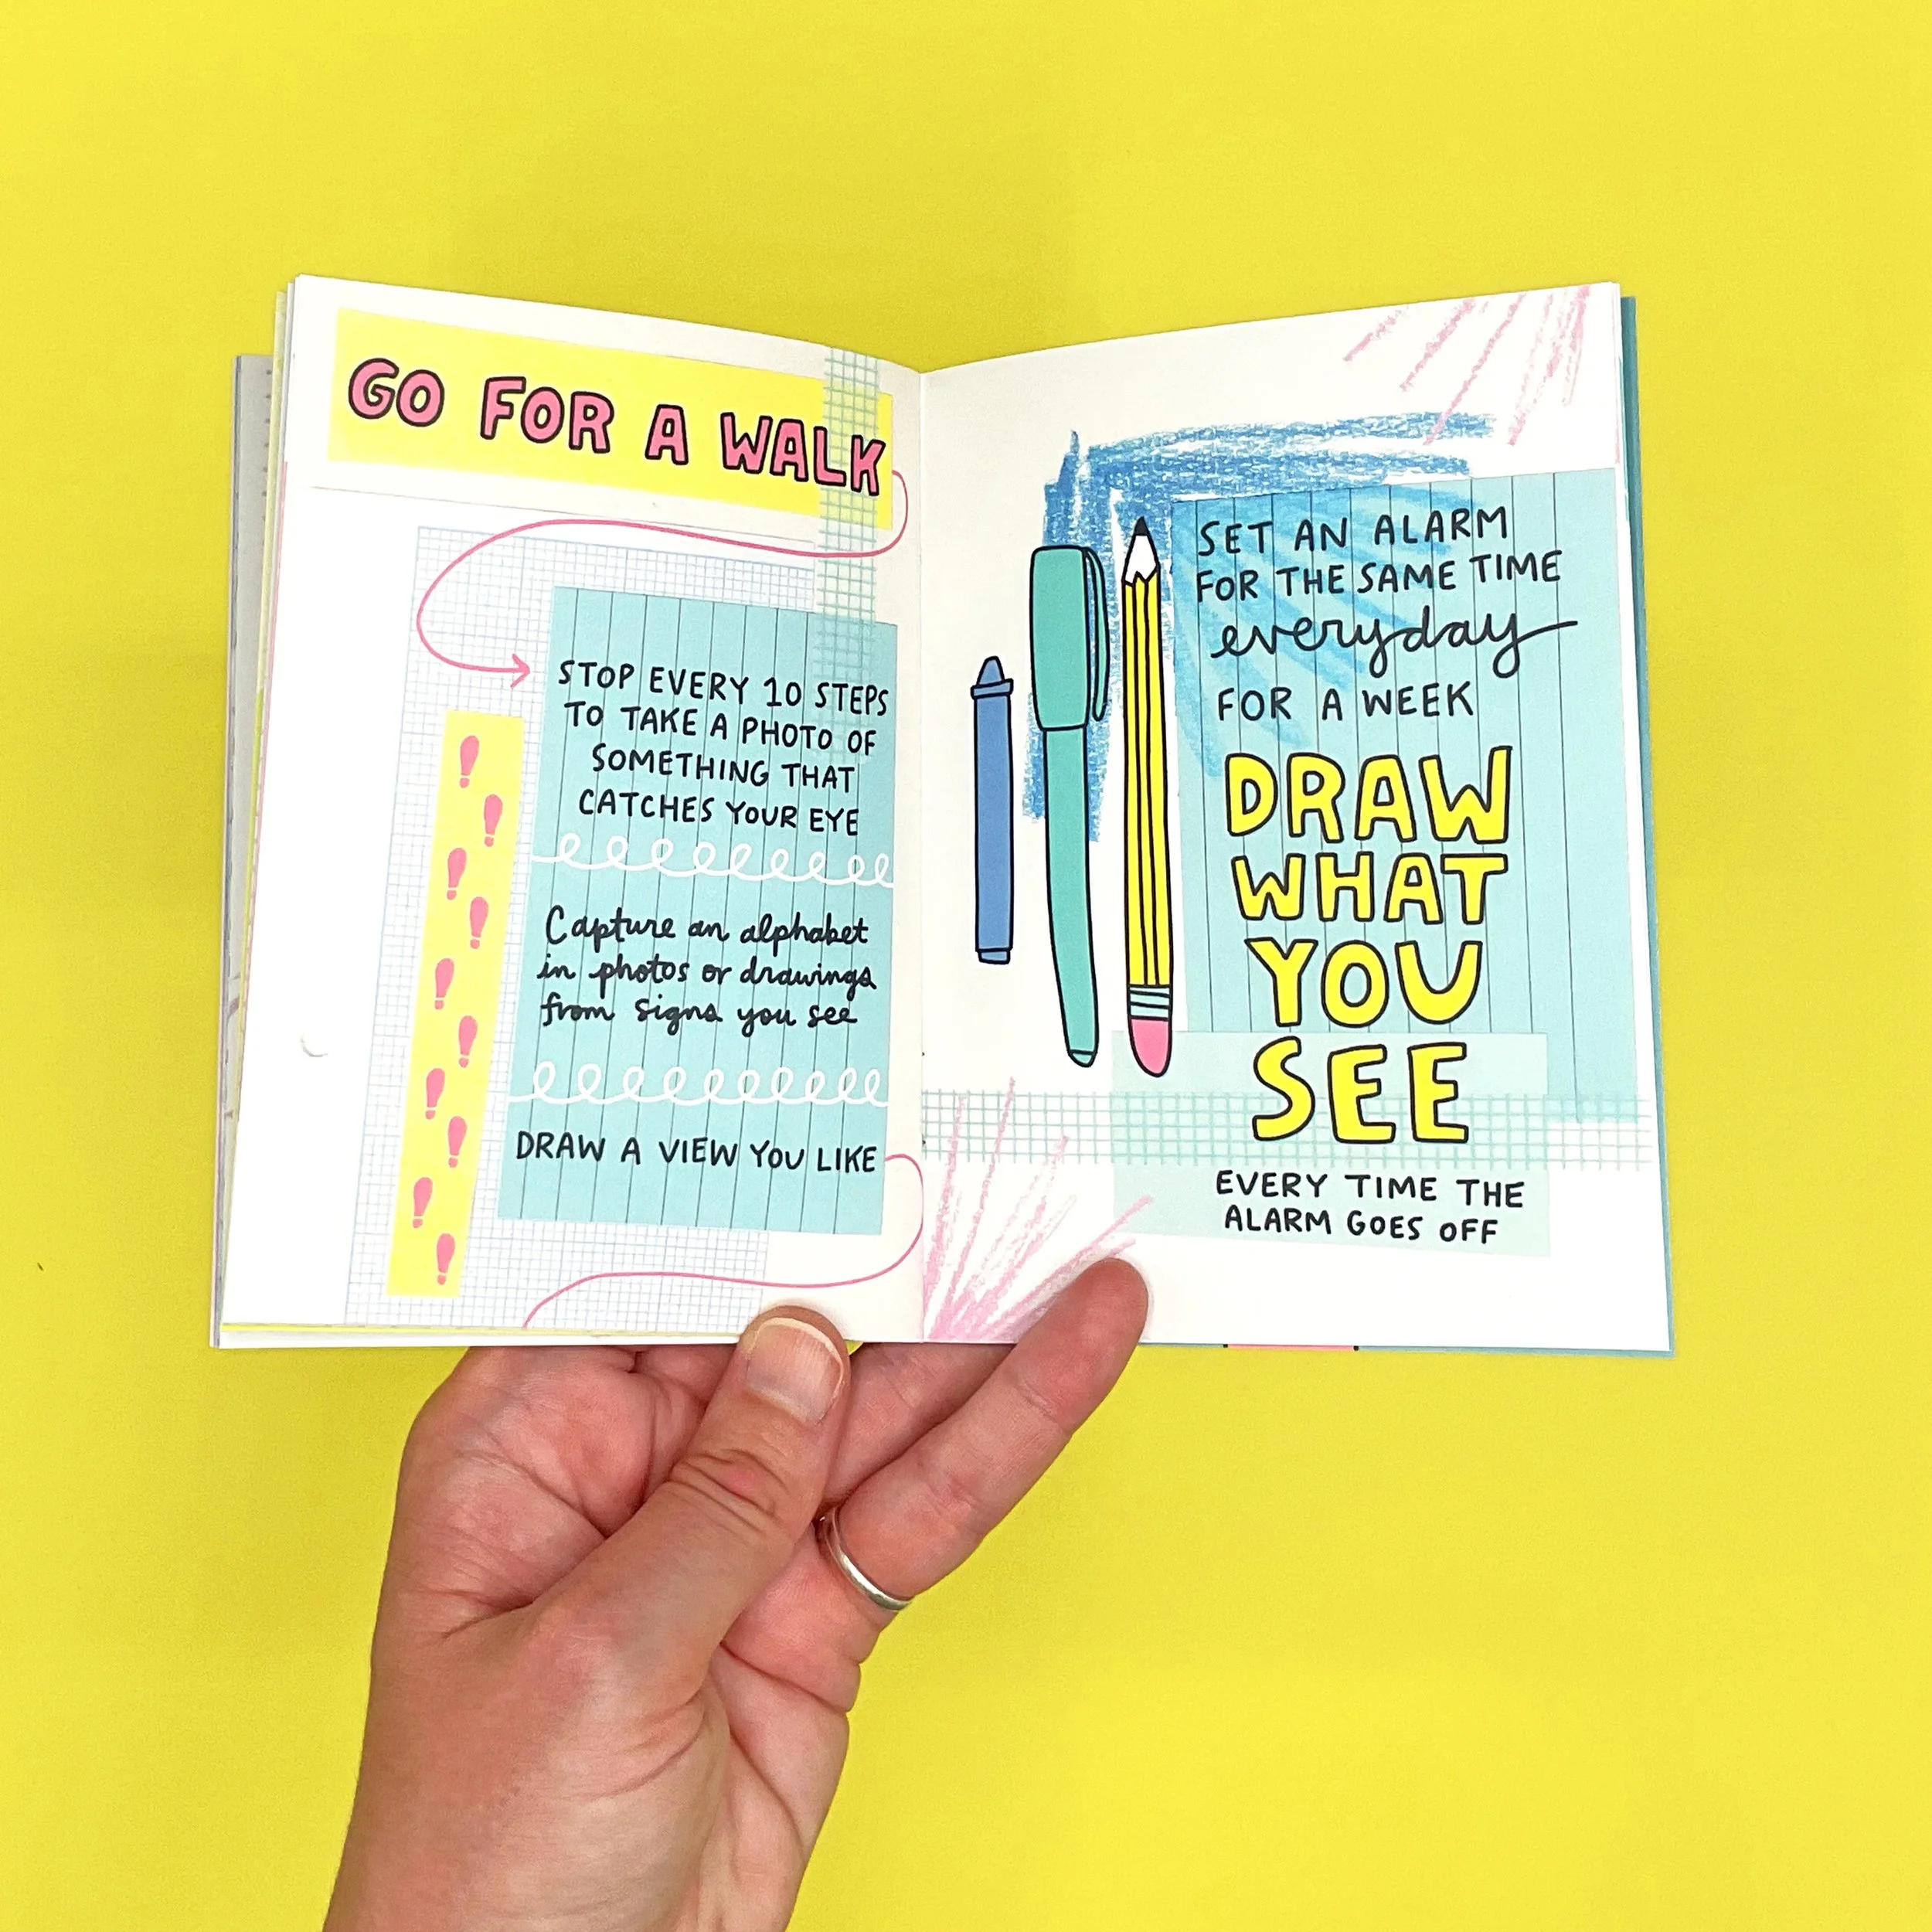 GO FOR A WALK
STOP EVERY 10 STEPS
TO TAKE A PHOTO OF
SOMETHING THAT
CATCHES YOUR EYE
Capture an alphabet
in photos or drawings
from signs you see
DRAW A VIEW YOU LIKE
SET AN ALARM
FOR THE SAME TIME
everyday
FOR A WEEK
DRAW
WHAT
YOU
SEE
EVERY TIME THE
ALARM GOES OFF